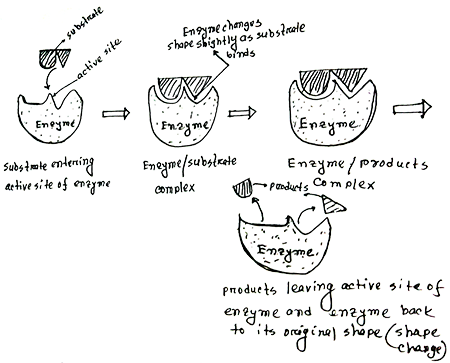 substrate
active site
Enzyme
Substrate entering
active site of enzyme
Enzyme changes
shape slightly as substrate
binds
Enzyme
Enzyme/substrate
complex
Enzyme
Enzyme/products
complex
products
Enzyme
products leaving active site of
enzyme and enzyme back
to its original shape (shape
change)